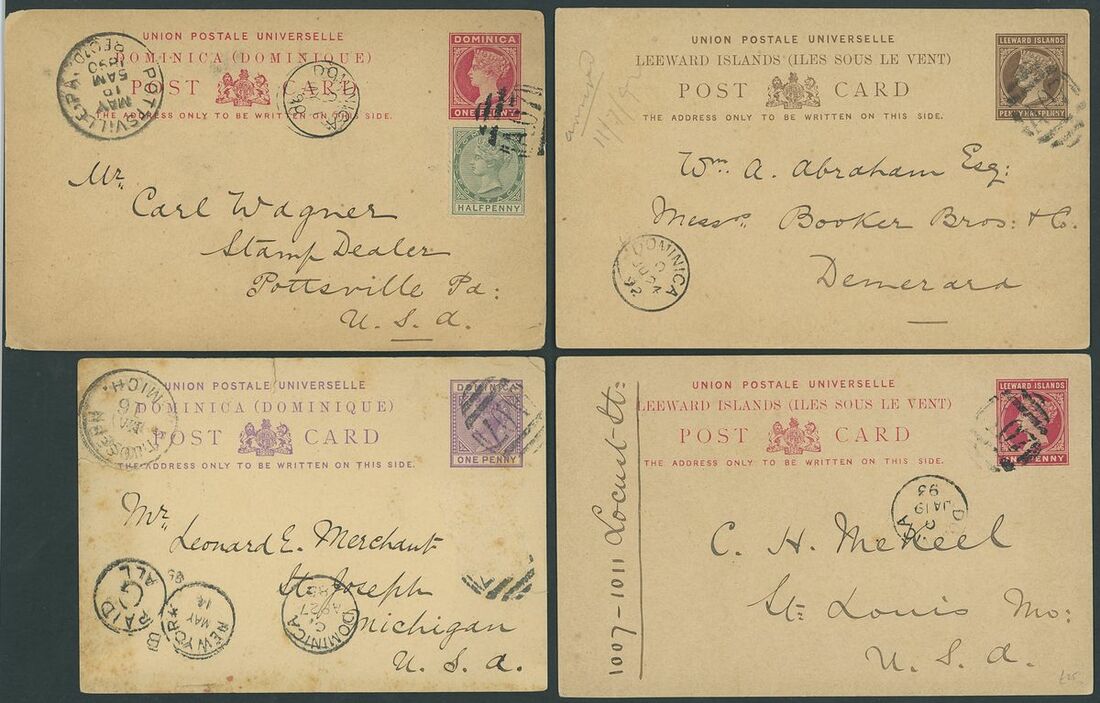 UNION POSTALE UNIVERSELLE
DOMINICA (DOMINIQUE)
POST CARD
THE ADDRESS ONLY TO BE WRITTEN ON THIS SIDE.
DOMINICA
ONE PENNY
HALFPENNY
A07
POTTSVILLE, PA.
MAY
5AM
1890
REC'D.
DOMINICA
90
Mr.
Carl Wagner
Stamp Dealer
Pottsville Pa:
U. S. A.
UNION POSTALE UNIVERSELLE
LEEWARD ISLANDS (ILES SOUS LE VENT)
POST CARD
THE ADDRESS ONLY TO BE WRITTEN ON THIS SIDE.
LEEWARD ISLANDS
PENNY HALFPENNY
Wm. A. Abraham Esq:
Messrs. Booker Bros: & Co.
Demerara
DOMINICA
C
92
UNION POSTALE UNIVERSELLE
DOMINICA (DOMINIQUE)
POST CARD
THE ADDRESS ONLY TO BE WRITTEN ON THIS SIDE.
DOMINICA
ONE PENNY
MICH.
Mr.
Leonard E. Merchant
St. Joseph
Michigan
U. S. A.
PAID
G
ALL
NEW YORK
MAY
14
DOMINICA
C
AP 27
UNION POSTALE UNIVERSELLE
LEEWARD ISLANDS (ILES SOUS LE VENT)
POST CARD
THE ADDRESS ONLY TO BE WRITTEN ON THIS SIDE.
LEEWARD ISLANDS
ONE PENNY
C
JA 19
93
1007-1011 Locust St:
C. H. Mekeel
St: Louis Mo:
U. S. A.